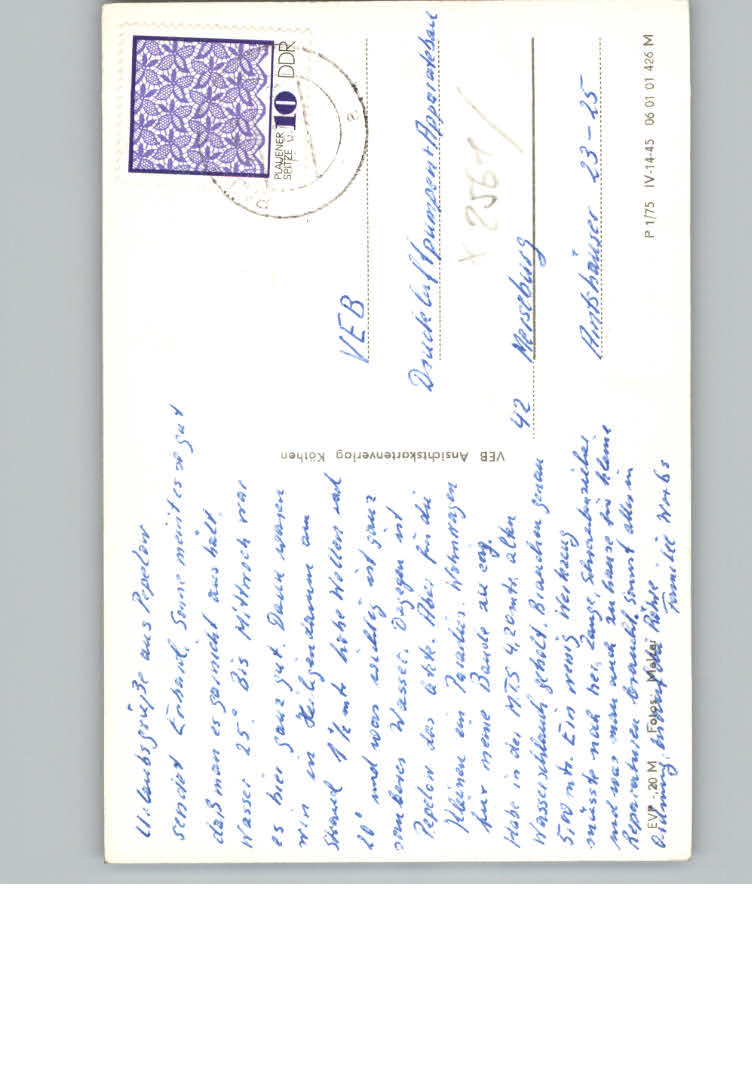 Urlaubsgrüße aus Pepelow
sendet Erhard. Sonne meint es so gut
daß man es garnicht aus hält.
Wasser 25° Bis Mittwoch war
es hier ganz gut. Dann waren
wir in Heiligendamm am
Strand 1½ mtr hohe Wellen und
20° und was wichtig ist ganz
sauberes Wasser. Dagegen ist
Pepelow das letzte. Aber für die
Kleinen ein Paradies. Wohnwagen
für meine Bande zu eng.
Habe in der MTS 4,20 mtr. alten
Wasserschlauch geholt. Brauchen genau
5,00 mtr. Ein wenig Werkzeug
müsste noch her, Zange, Schraubenzieher
und was man auch zu hause für kleine
Reparaturen braucht, sonst alles in
Ordnung,
Familie
EVP -,20 M Fotos:
VEB Ansichtskartenverlag Köthen
PLAUENER
SPITZE
10 DDR
VEB
Druckluftpumpen + Apparatebau
x 2561/
42 Merseburg
Amtshäuser 23-25
P 1/75 IV-14-45 06 01 01 426 M